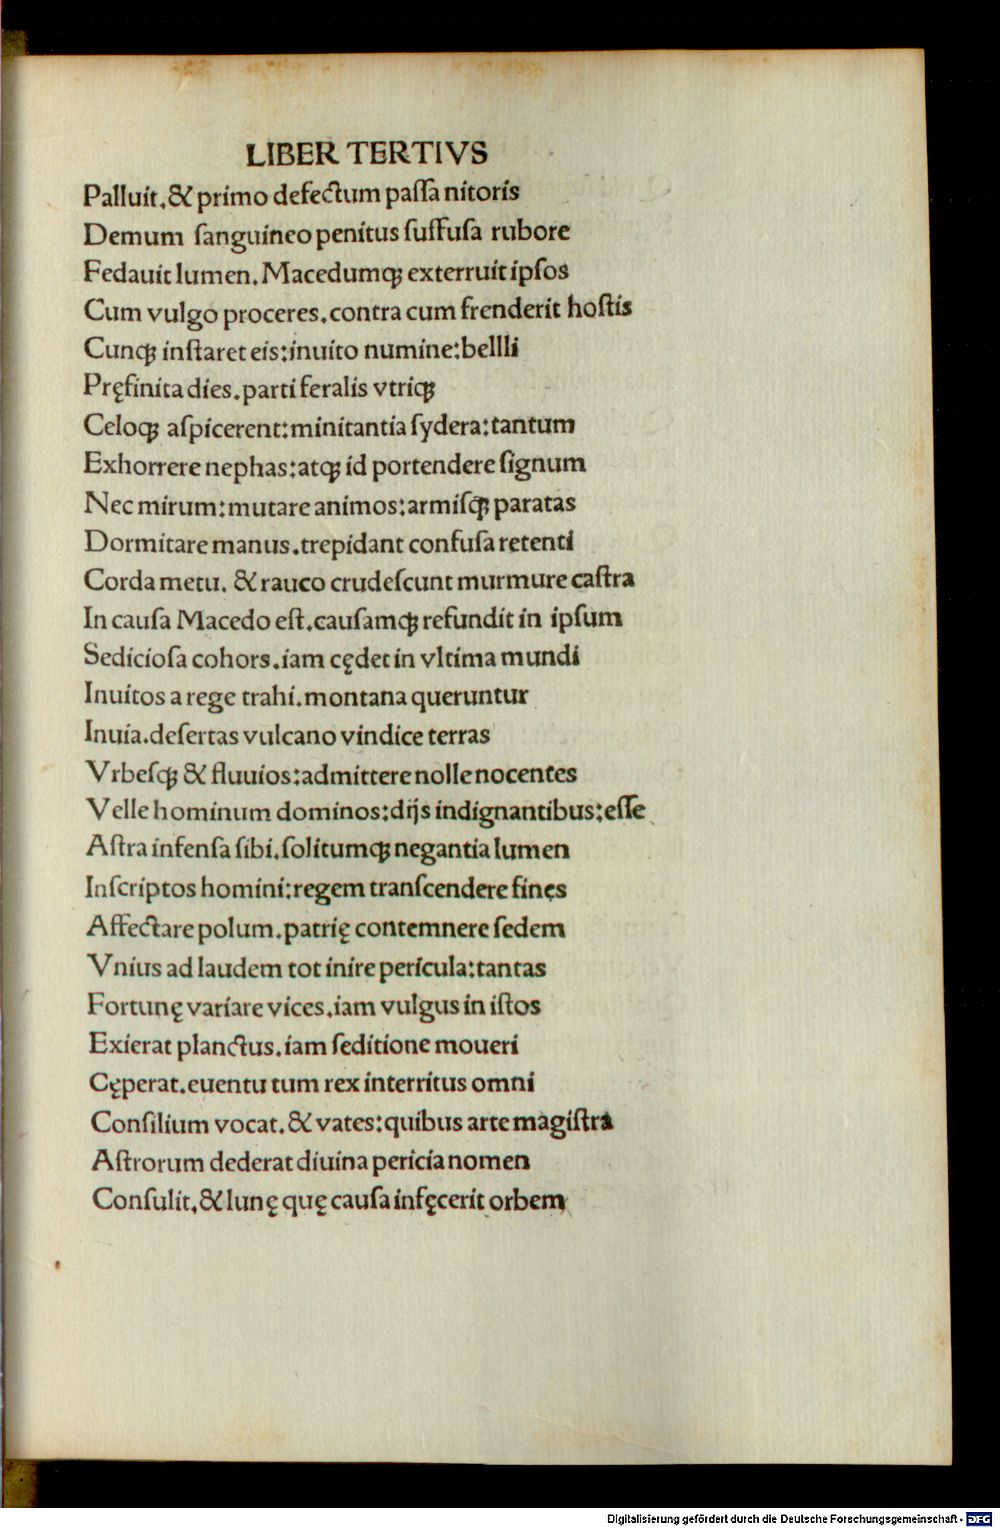 LIBER TERTIVS
Palluit.& primo defectum paſſa nitoris
Demum ſanguineo penitus ſuffuſa rubore
Fedauit lumen. Macedumqꝫ exterruit ipſos
Cum vulgo proceres.contra cum frenderit hoſtis
Cunqꝫ inſtaret eis:inuito numine:bellli
Pręfinita dies.parti feralis vtriqꝫ
Celoqꝫ aſpicerent:minitantia ſydera:tantum
Exhorrere nephas:atqꝫ id portendere ſignum
Nec mirum:mutare animos:armiſqꝫ paratas
Dormitare manus.trepidant confuſa retenti
Corda metu. & rauco crudeſcunt murmure caſtra
In cauſa Macedo eſt.cauſamqꝫ refundit in ipſum
Sedicioſa cohors.iam cędet in vltima mundi
Inuitos a rege trahi.montana queruntur
Inuia.deſertas vulcano vindice terras
Vrbeſqꝫ & fluuios:admittere nolle nocentes
Velle hominum dominos:dijs indignantibus:eſſe
Aſtra infenſa ſibi.ſolitumqꝫ negantia lumen
Inſcriptos homini:regem tranſcendere fines
Affectare polum.patrię contemnere ſedem
Vnius ad laudem tot inire pericula:tantas
Fortunę variare vices.iam vulgus in iſtos
Exierat planctus.iam ſeditione moueri
Cęperat.euentu tum rex interritus omni
Conſilium vocat.& vates:quibus arte magiſtra
Aſtrorum dederat diuina pericia nomen
Conſulit.& lunę quę cauſa infęcerit orbem
Digitalisierung gefördert durch die Deutsche Forschungsgemeinschaft - DFG